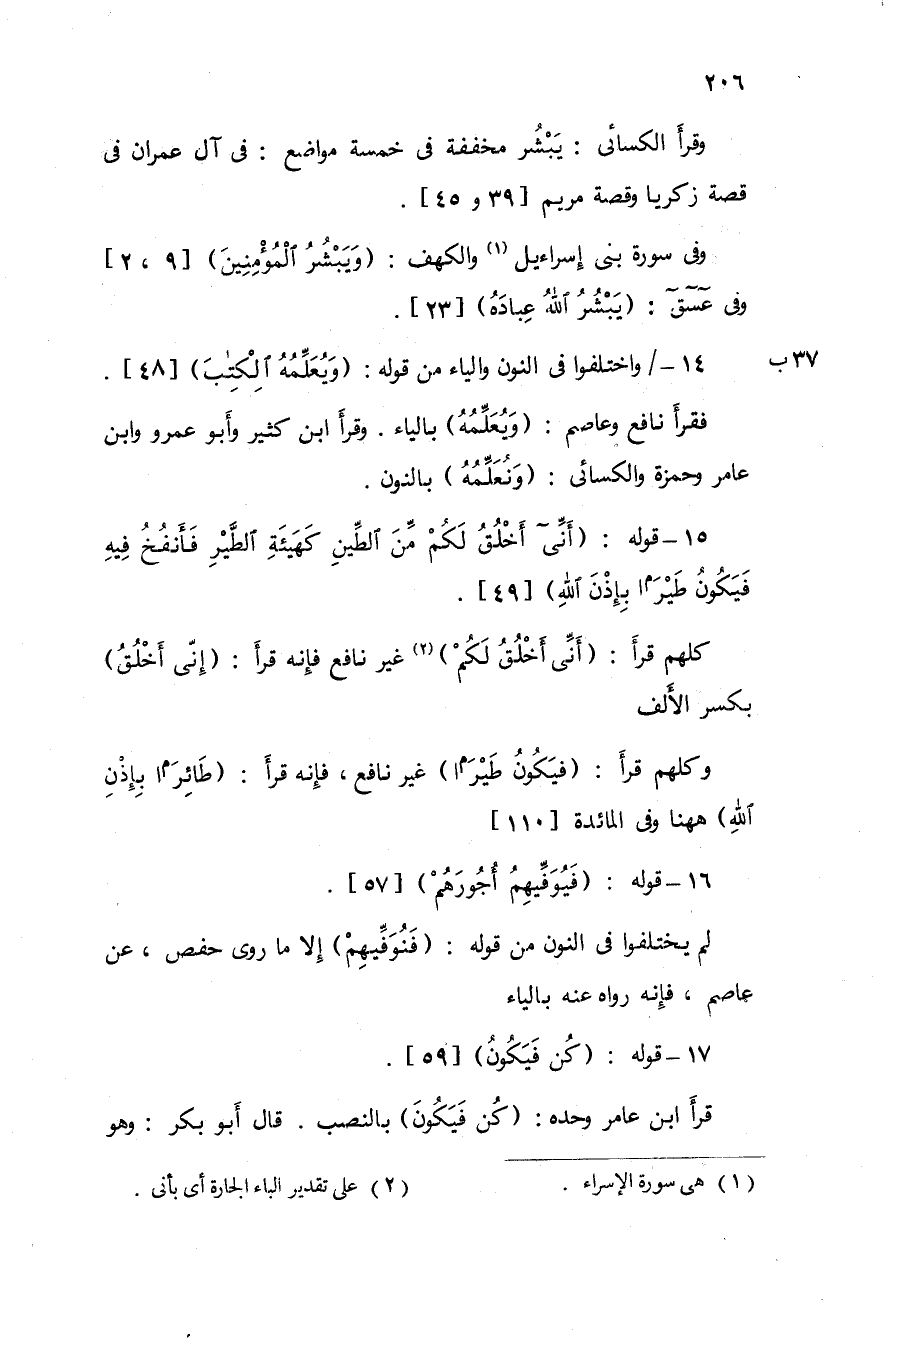 ٢٠٦
وقرأ الكسائى : يَبْشُر مخففة فى خمسة مواضع : فى آل عمران فى
قصة زكريا وقصة مريم [ ٣٩ و ٤٥ ] .
وفى سورة بنى إسراءيل (١) والكهف : (وَيَبْشُرُ ٱلْمُؤْمِنِينَ) [ ٩ ، ٢ ]
وفى عَسَقَ : (يَبْشُرُ ٱللَّهُ عِبَادَهُ) [ ٢٣ ] .
٣٧ ب
١٤ – / واختلفوا فى النون والياء من قوله : (وَيُعَلِّمُهُ ٱلْكِتَٰبَ) [ ٤٨ ] .
فقرأ نافع وعاصم : (وَيُعَلِّمُهُ) بالياء . وقرأ ابن كثير وأبو عمرو وابن
عامر وحمزة والكسائى : (وَنُعَلِّمُهُ) بالنون .
١٥ – قوله : (أَنِّىٓ أَخْلُقُ لَكُمْ مِّنَ ٱلطِّينِ كَهَيْئَةِ ٱلطَّيْرِ فَأَنفُخُ فِيهِ
فَيَكُونُ طَيْرَۢا بِإِذْنِ ٱللَّهِ) [ ٤٩ ] .
كلهم قرأ : (أَنِّى أَخْلُقُ لَكُمْ) (٢) غير نافع فإنه قرأ : (إِنِّى أَخْلُقُ)
بكسر الأَلف
وكلهم قرأ : (فَيَكُونُ طَيْرَۢا) غير نافع ، فإنه قرأ : (طَائِرَۢا بِإِذْنِ
ٱللَّهِ) ههنا وفى المائدة [ ١١٠ ]
١٦ – قوله : (فَيُوَفِّيهِمُ أُجُورَهُمْ) [ ٥٧ ] .
لم يختلفوا فى النون من قوله : (فَنُوَفِّيهِمْ) إلا ما روى حفص ، عن
عاصم ، فإنه رواه عنه بالياء
١٧ – قوله : (كُن فَيَكُونُ) [ ٥٩ ] .
قرأ ابن عامر وحده : (كُن فَيَكُونَ) بالنصب . قال أبو بكر : وهو
(١) هى سورة الإسراء .
(٢) على تقدير الباء الجارة أى بأنى .